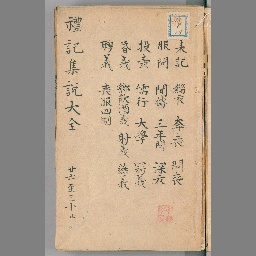 表記 緇衣 奔喪 問喪
服問 間傳 三年問 深衣
投壺 儒行 大學 冠義
昏義 鄉飲酒義 射義 燕義
聘義 喪服四制
禮記集說大全